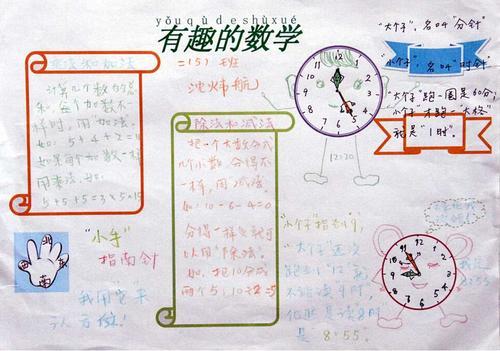 yǒu qù de shù xué
有趣的数学
二(5)班
沈炜航
"大个子",名叫"分针"
"小个子",名叫"时针"
"大个子"跑一圈是60分,
"小个子"才跑一"大格"
就是"1时"。
乘法和加法
计算几个数的总
和,每个加数不一
样时,用"加法"。
如:5+4+2=11
如果每个加数一样
用乘法,如:
5+5+5=3×5=15
除法和减法
把一个大数分成
几个小数,分得不
一样,用减法。
如:10-6-4=0
分得一样多就可
以用"除法"。
如:把10分成
两个5:10÷2=5
12
11
1
10
2
9
3
8
4
7
5
6
12:20
"小手"
指南针
我用它来
认方位!
北
西
东
南
"小个子"指向9,
"大个子"还没
跑到"12",就
不能读9时,
他就是读8时
是 8:55。
12
11
1
10
2
9
3
8
4
7
5
6
8:55